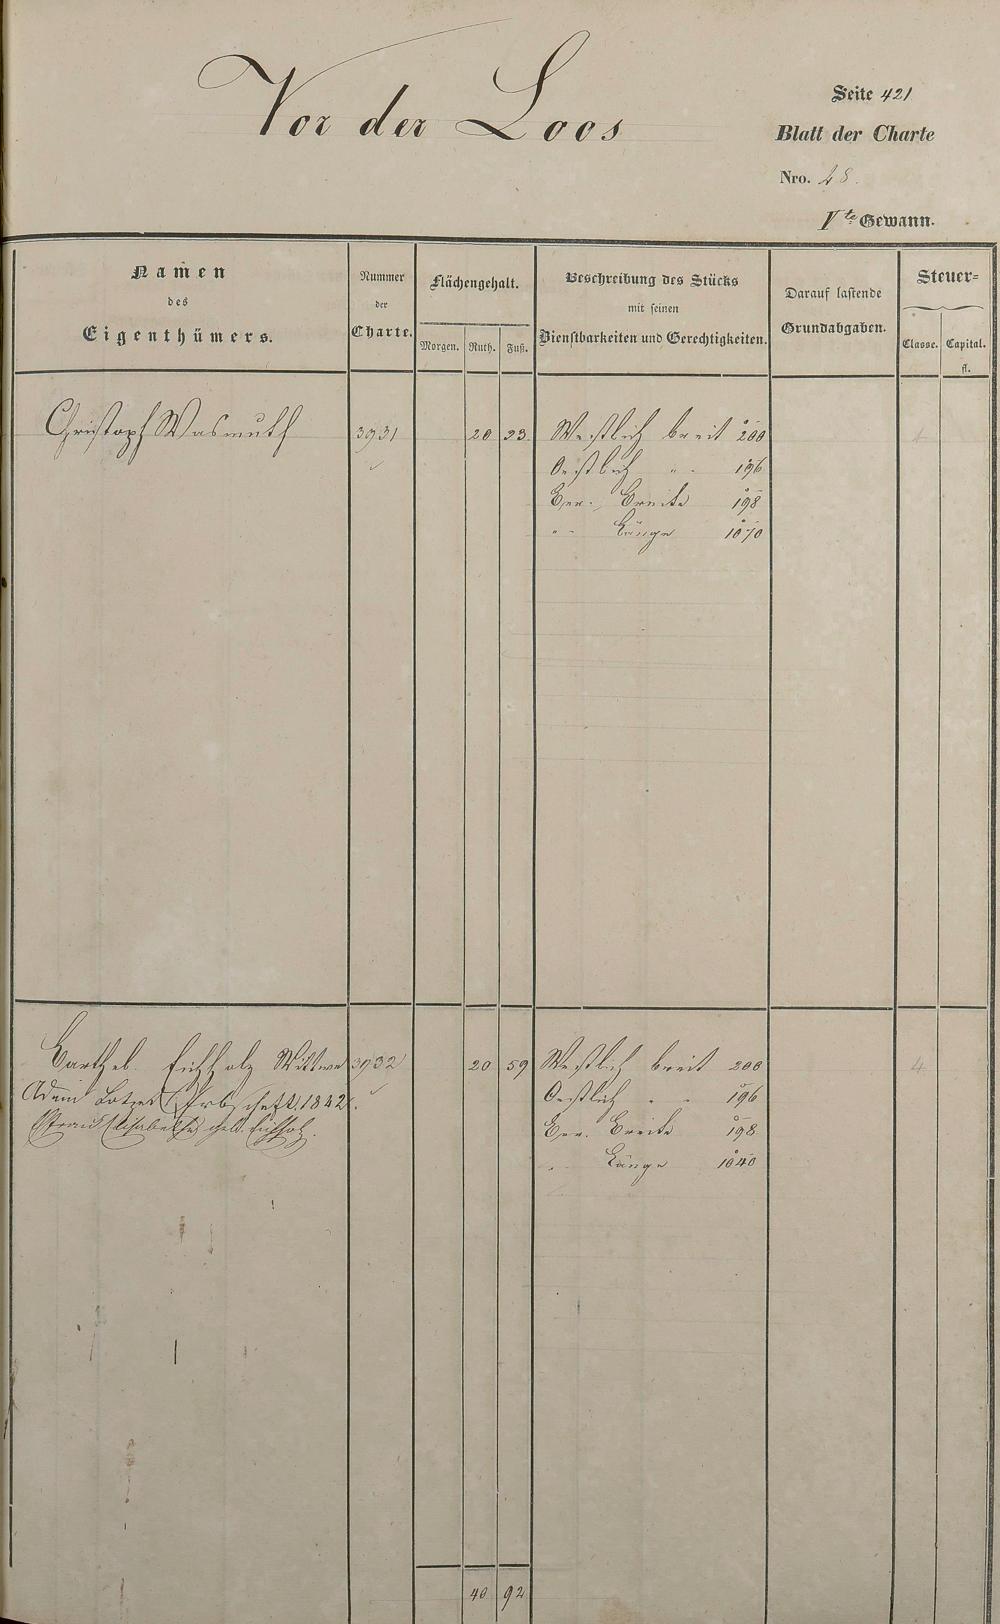 Vor der Loos
Seite 421
Blatt der Charte
Nro. 48.
Vte Gewann.
Namen
des
Eigenthümers.
Nummer
der
Charte.
Flächengehalt.
Morgen. Ruth. Fuß.
Beschreibung des Stücks
mit seinen
Dienstbarkeiten und Gerechtigkeiten.
Darauf lastende
Grundabgaben.
Steuer=
Classe. Capital.
fl.
Christoph Wasmuth 3931 20 33 Westlich breit 200
Oestlich " - 196
Ber. Breite 198
" - Länge 1070
Barthel. Eichholz Wittwe 3932 20 59 Westlich breit 200 4
Adam Erbschaft. 1842. Oestlich - - 196
Elisabetha geb. Eichholz. Ber. Breite 198
" - Länge 1040
40 92